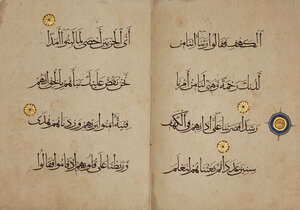 الكهف فقالوا ربنا آتنا من
لدنك رحمة وهيئ لنا من أمرنا
رشدا فضربنا على آذانهم في الكهف
سنين عددا ثم بعثناهم لنعلم
أي الحزبين أحصى لما لبثوا أمدا
نحن نقص عليك نبأهم بالحق إنهم
فتية آمنوا بربهم وزدناهم هدى
وربطنا على قلوبهم إذ قاموا فقالوا